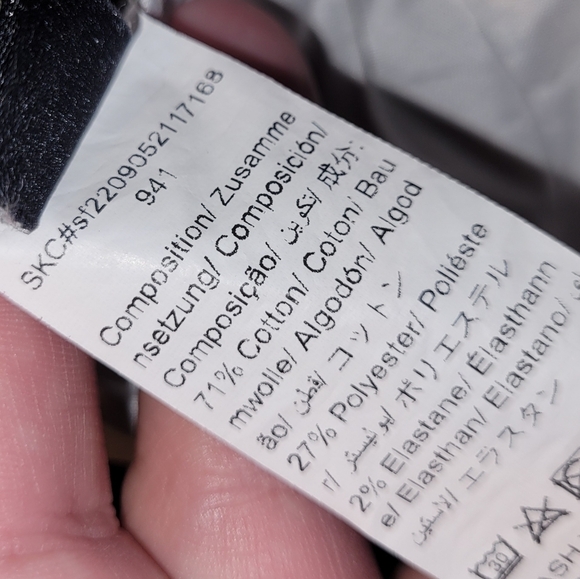 SKC#sf2209052117168
941
Composition/ Zusamme
nsetzung/ Composición/
Composição/ تكوين/ 成分:
71% Cotton/ Coton/ Bau
mwolle/ Algodón/ Algod
ão/ قطن/ コットン
27% Polyester/ Polieste
r/ ポリエステル
2% Elastane/ Élasthann
e/ Elasthan/ Elastano/
エラスタン
30